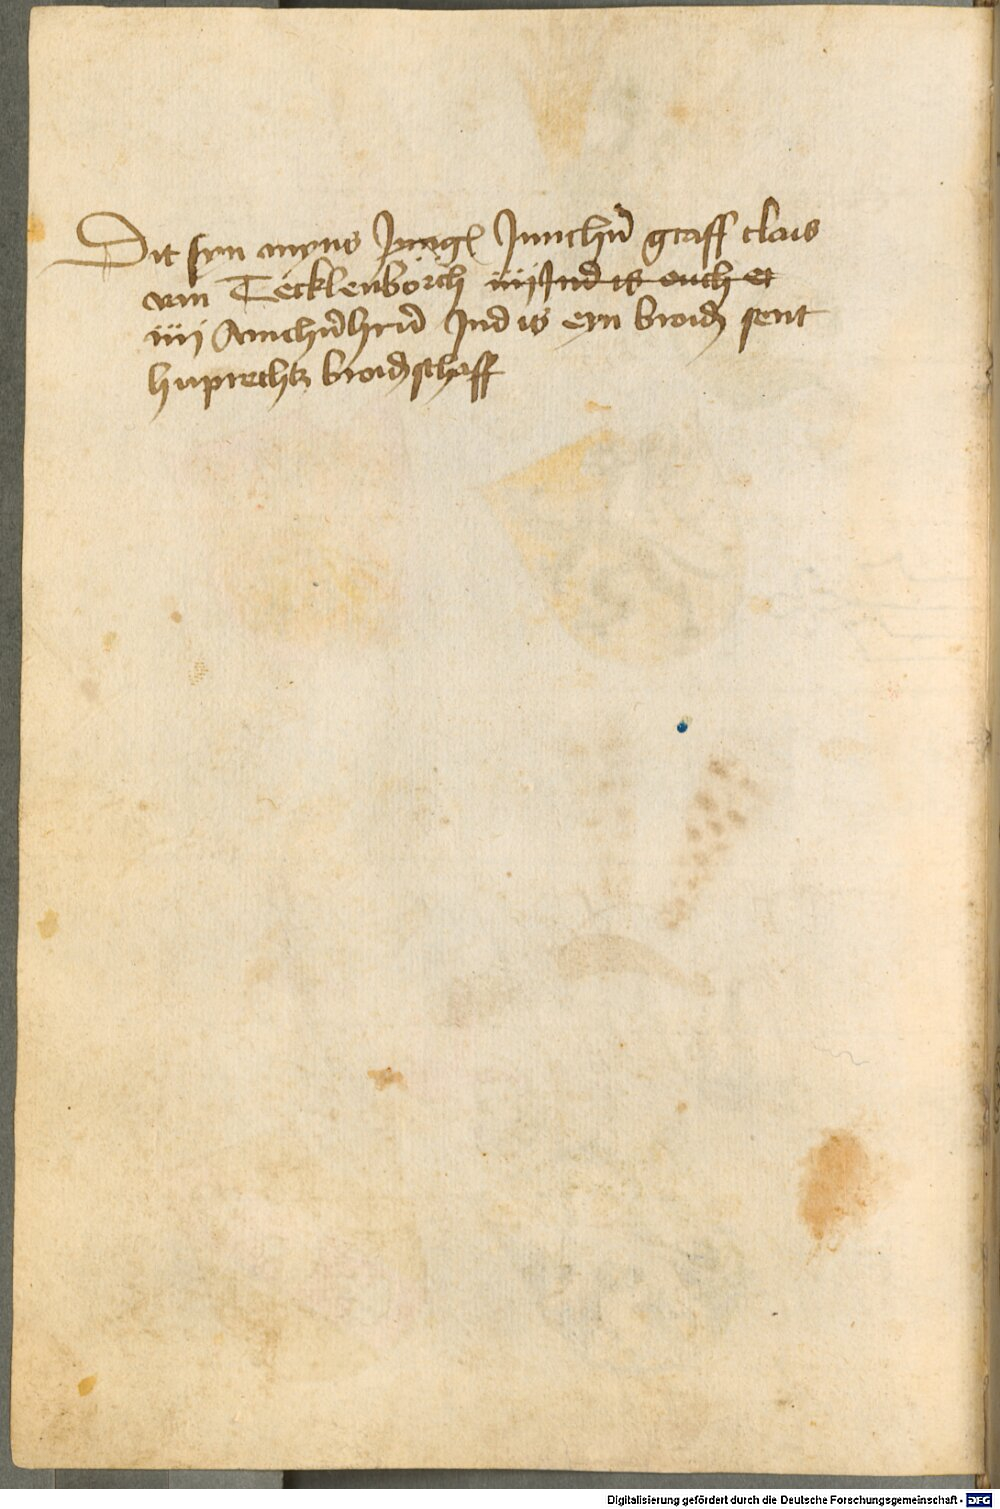 Dit syn myns Jungē Junchīr graff clais
van Tecklenborch iiij Ind is ouch et
iiij Anichūhrū Ind is eyn broid̄ sent
huprechtz broid̄schaff
Digitalisierung gefördert durch die Deutsche Forschungsgemeinschaft - DFG